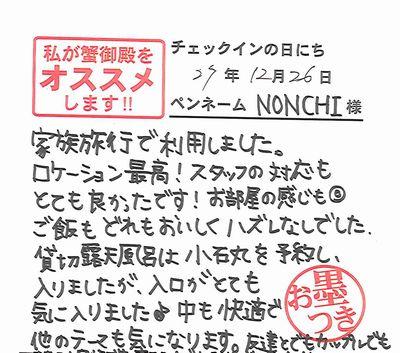 私が蟹御殿を
オススメ
します!!
チェックインの日にち
29年12月26日
ペンネーム NONCHI 様
家族旅行で利用しました。
ロケーション最高！スタッフの対応も
とても良かったです！お部屋の感じも◎
ご飯もどれもおいしくハズレなしでした。
貸切露天風呂は小石丸を予約し、
入りましたが、入口がとても
気に入りました♪中も快適で
他のテーマも気になります。友達とでもカップルでも
お墨つき